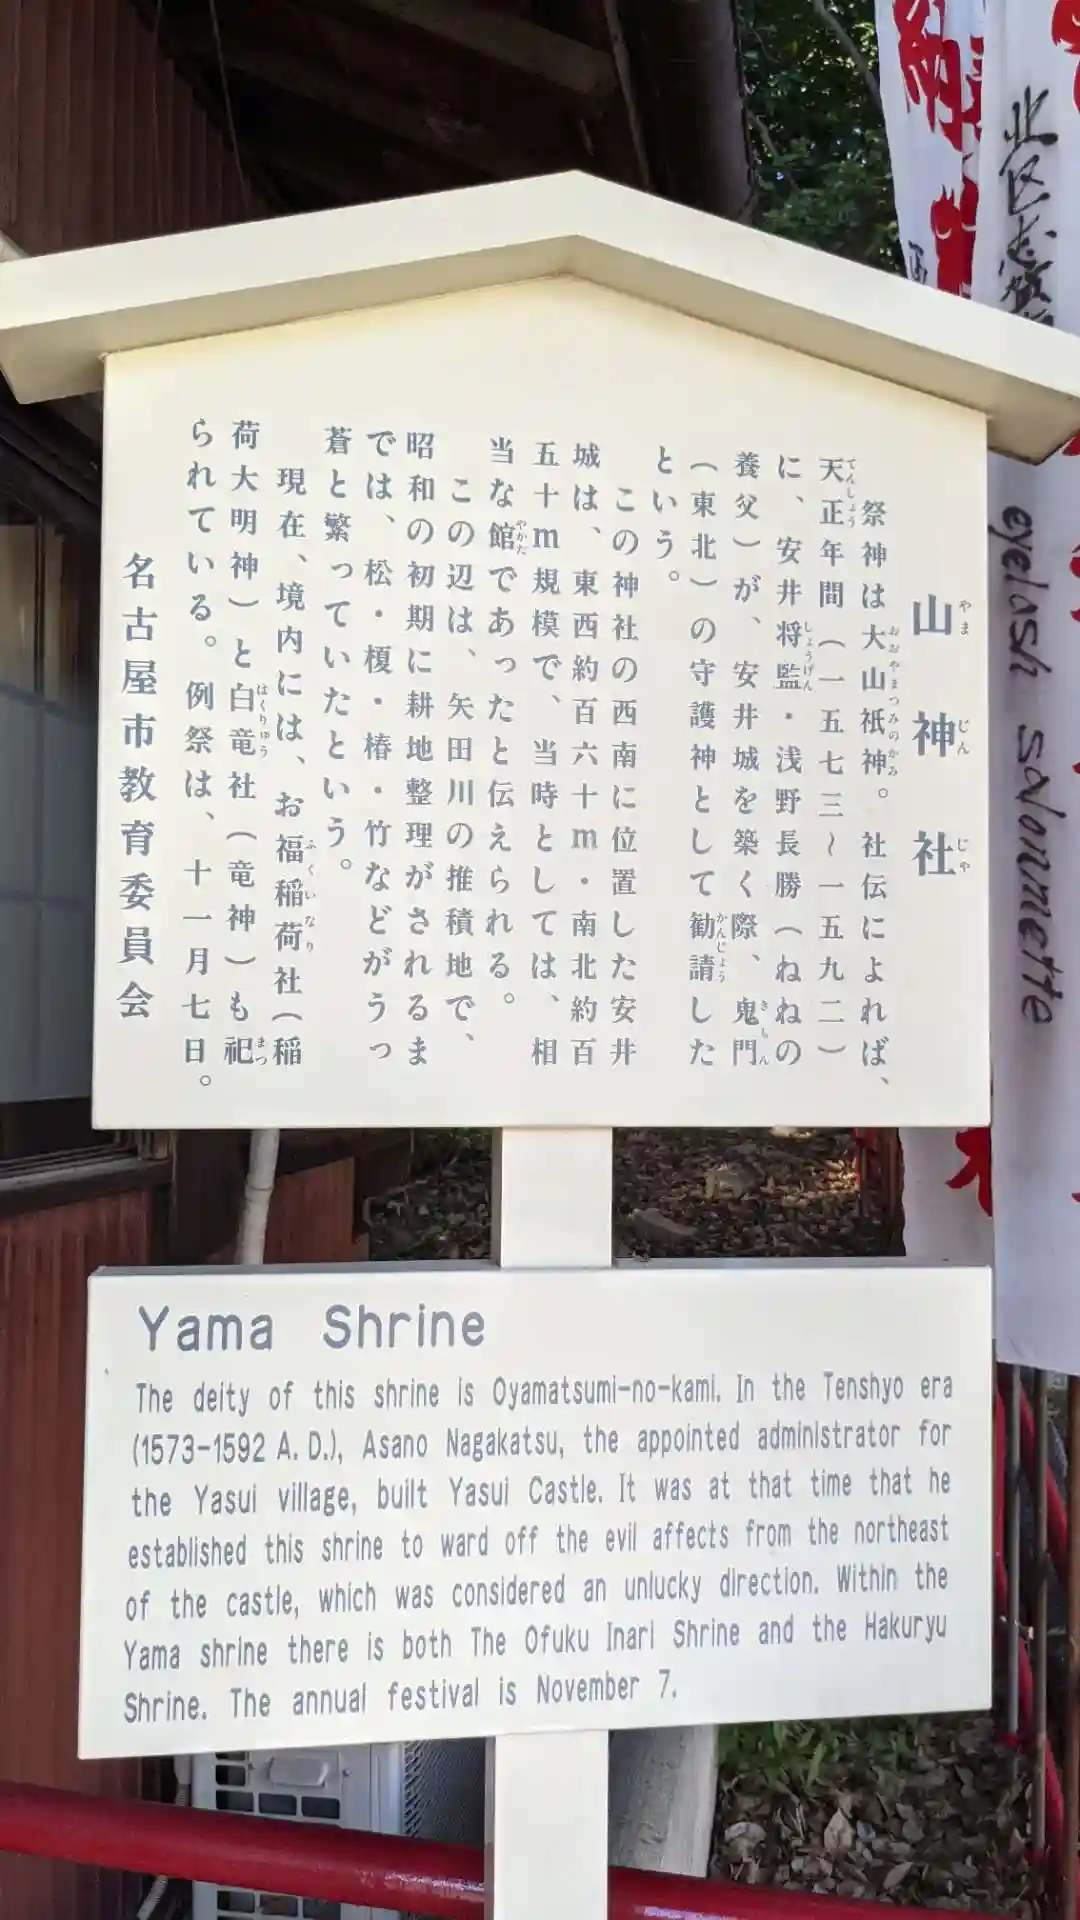 山神社
祭神は大山祇神。社伝によれば、
天正年間（一五七三〜一五九二）
に、安井将監・浅野長勝（ねねの
養父）が、安井城を築く際、鬼門
（東北）の守護神として勧請した
という。
この神社の西南に位置した安井
城は、東西約百六十m・南北約百
五十m規模で、当時としては、相
当な館であったと伝えられる。
この辺は、矢田川の推積地で、
昭和の初期に耕地整理がされるま
では、松・榎・椿・竹などがうっ
蒼と繁っていたという。
現在、境内には、お福稲荷社（稲
荷大明神）と白竜社（竜神）も祀
られている。例祭は、十一月七日。
名古屋市教育委員会
Yama Shrine
The deity of this shrine is Oyamatsumi-no-kami. In the Tenshyo era
(1573-1592 A.D.), Asano Nagakatsu, the appointed administrator for
the Yasui village, built Yasui Castle. It was at that time that he
established this shrine to ward off the evil affects from the northeast
of the castle, which was considered an unlucky direction. Within the
Yama shrine there is both The Ofuku Inari Shrine and the Hakuryu
Shrine. The annual festival is November 7.
納
北区志賀
eyelash salonmette